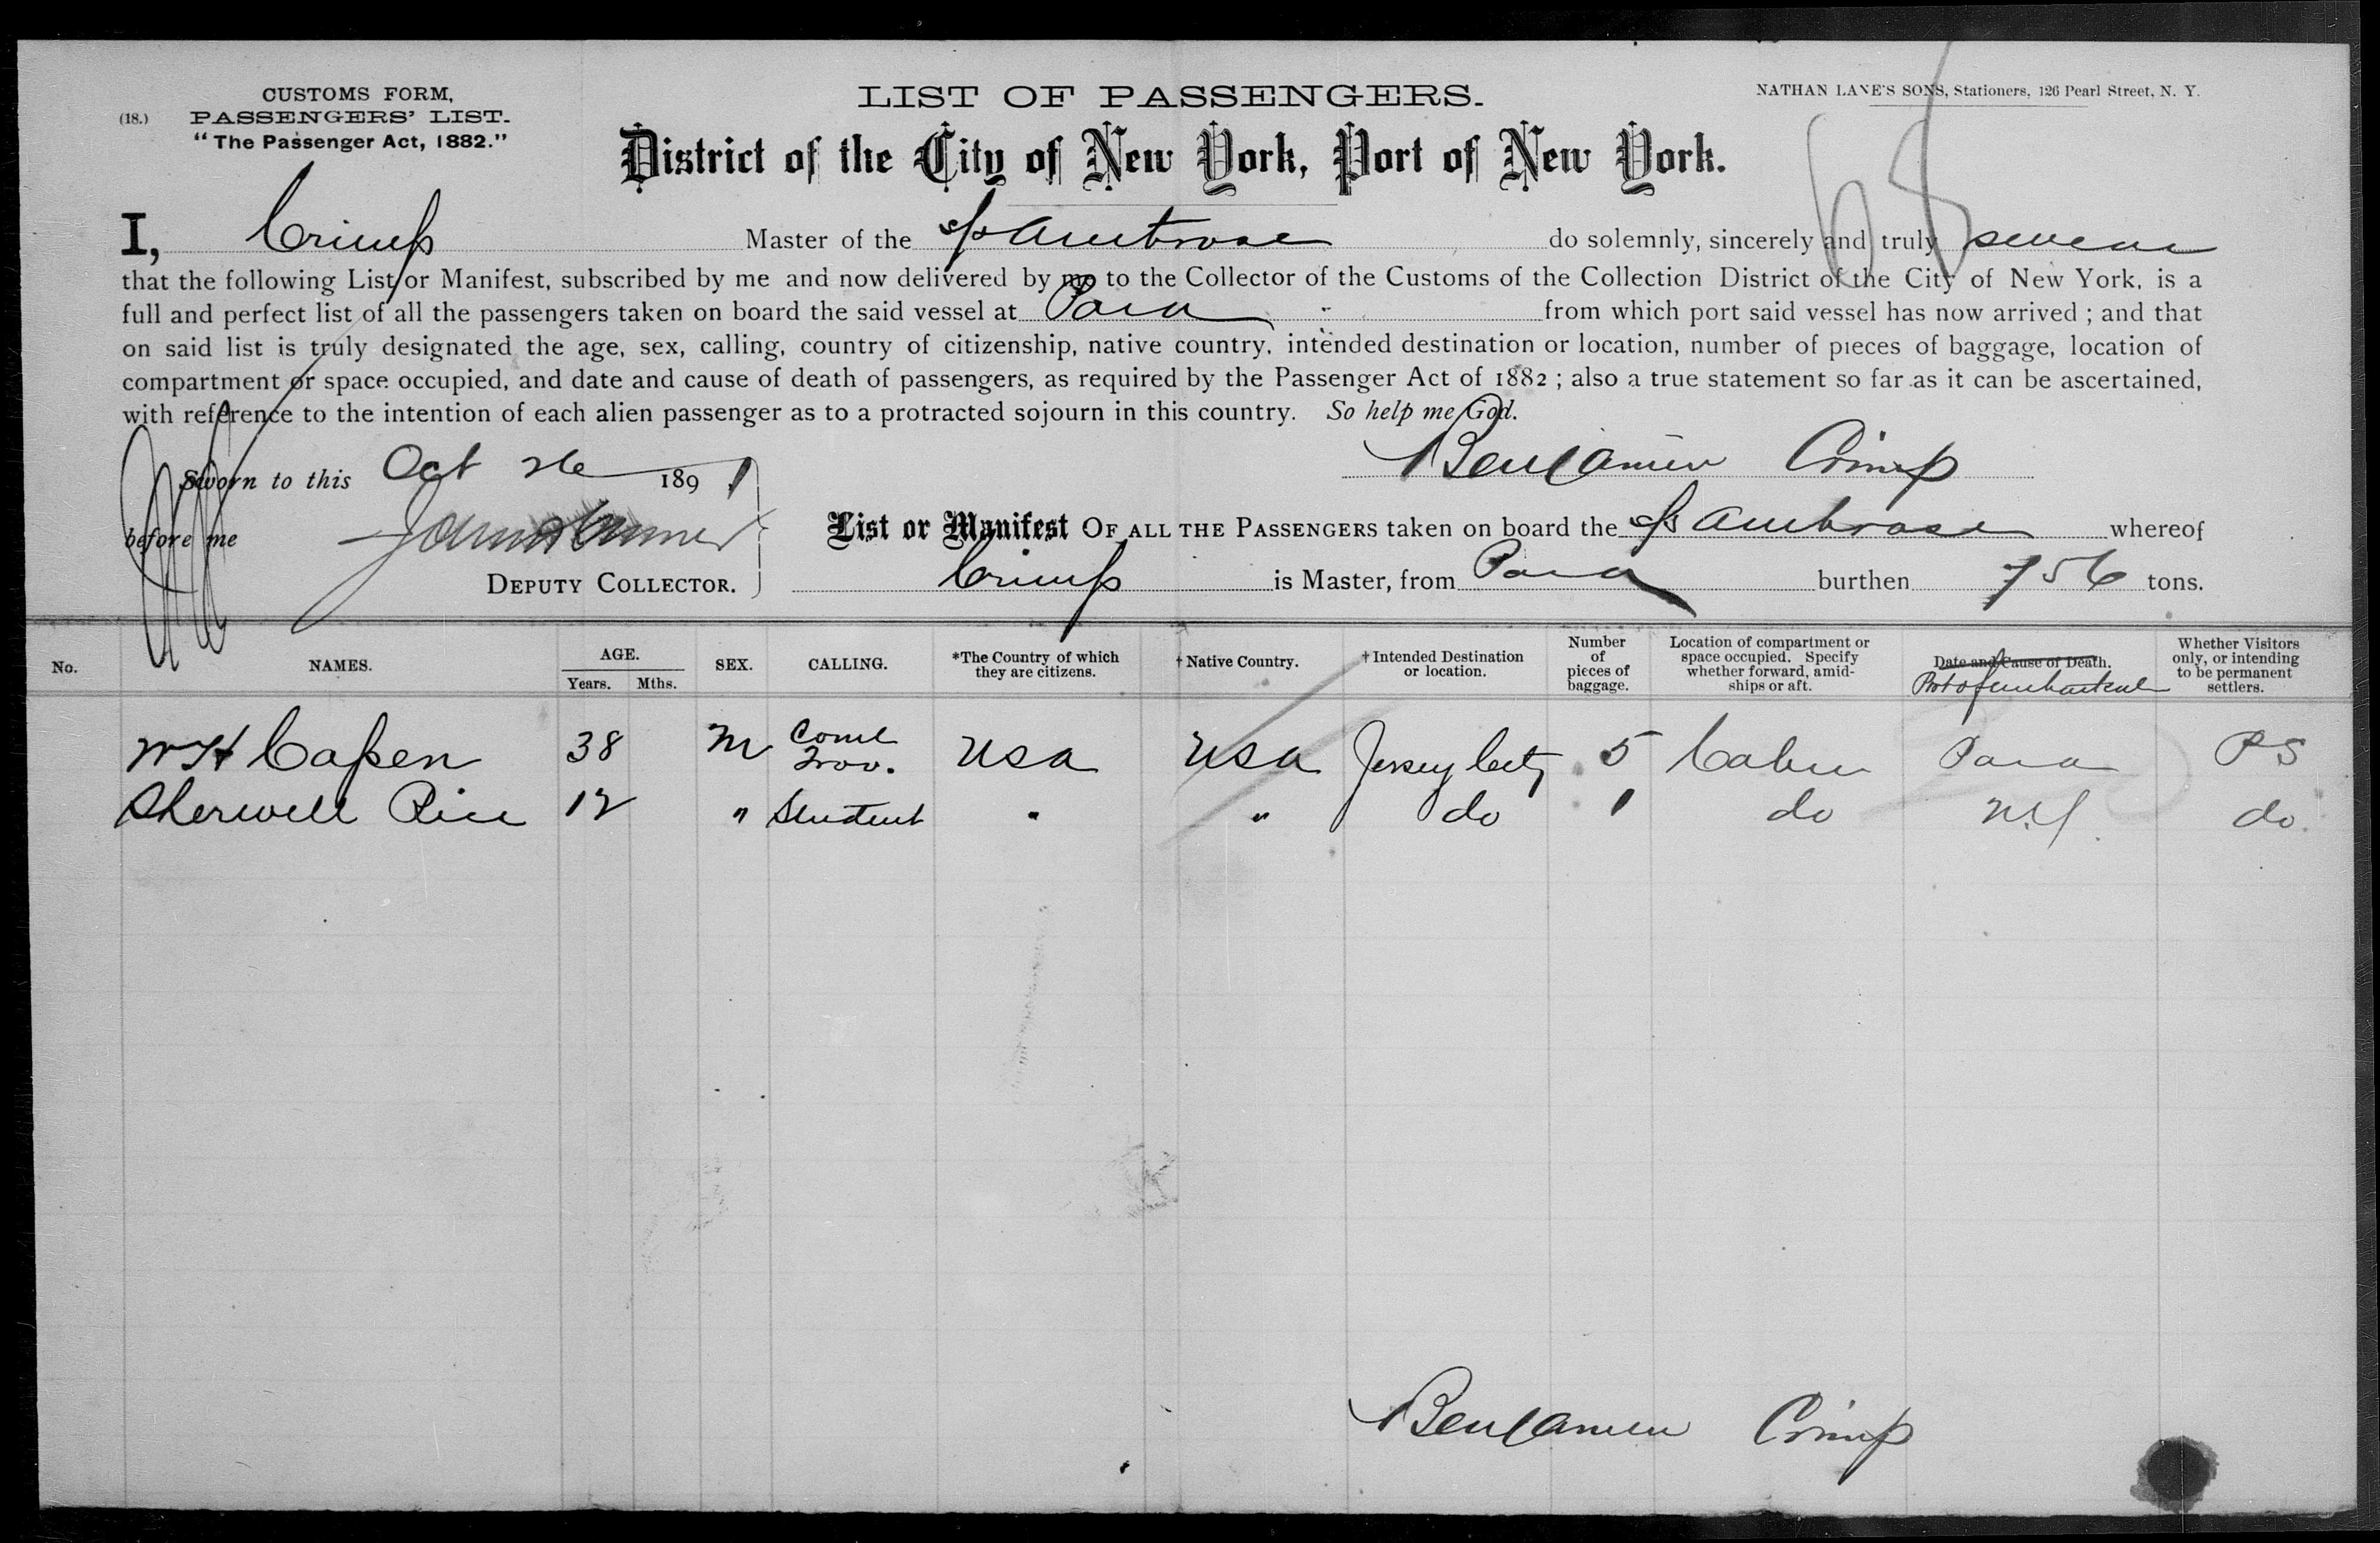 (18.)
CUSTOMS FORM,
PASSENGERS' LIST.
"The Passenger Act, 1882."
LIST OF PASSENGERS.
NATHAN LANE'S SONS, Stationers, 126 Pearl Street, N. Y.
District of the City of New York, Port of New York.
68
I, Crimp Master of the s/s Ambrose do solemnly, sincerely and truly swear
that the following List or Manifest, subscribed by me and now delivered by me to the Collector of the Customs of the Collection District of the City of New York, is a
full and perfect list of all the passengers taken on board the said vessel at Para from which port said vessel has now arrived ; and that
on said list is truly designated the age, sex, calling, country of citizenship, native country, intended destination or location, number of pieces of baggage, location of
compartment or space occupied, and date and cause of death of passengers, as required by the Passenger Act of 1882 ; also a true statement so far as it can be ascertained,
with reference to the intention of each alien passenger as to a protracted sojourn in this country. So help me God.
Sworn to this Oct 26 1891
Benjamin Crimp
before me
DEPUTY COLLECTOR.
List or Manifest OF ALL THE PASSENGERS taken on board the s/s Ambrose whereof
Crimp is Master, from Para burthen 756 tons.
No. NAMES. AGE. Years. Mths. SEX. CALLING. *The Country of which they are citizens. † Native Country. † Intended Destination or location. Number of pieces of baggage. Location of compartment or space occupied. Specify whether forward, amid-ships or aft. Date and Cause of Death. Port of embarkat Whether Visitors only, or intending to be permanent settlers.
W H Capen 38 M Coml Trav. USA USA Jersey City 5 Cabin Para PS
Sherwell Rice 12 " Student " " do 1 do do
Benjamin Crimp